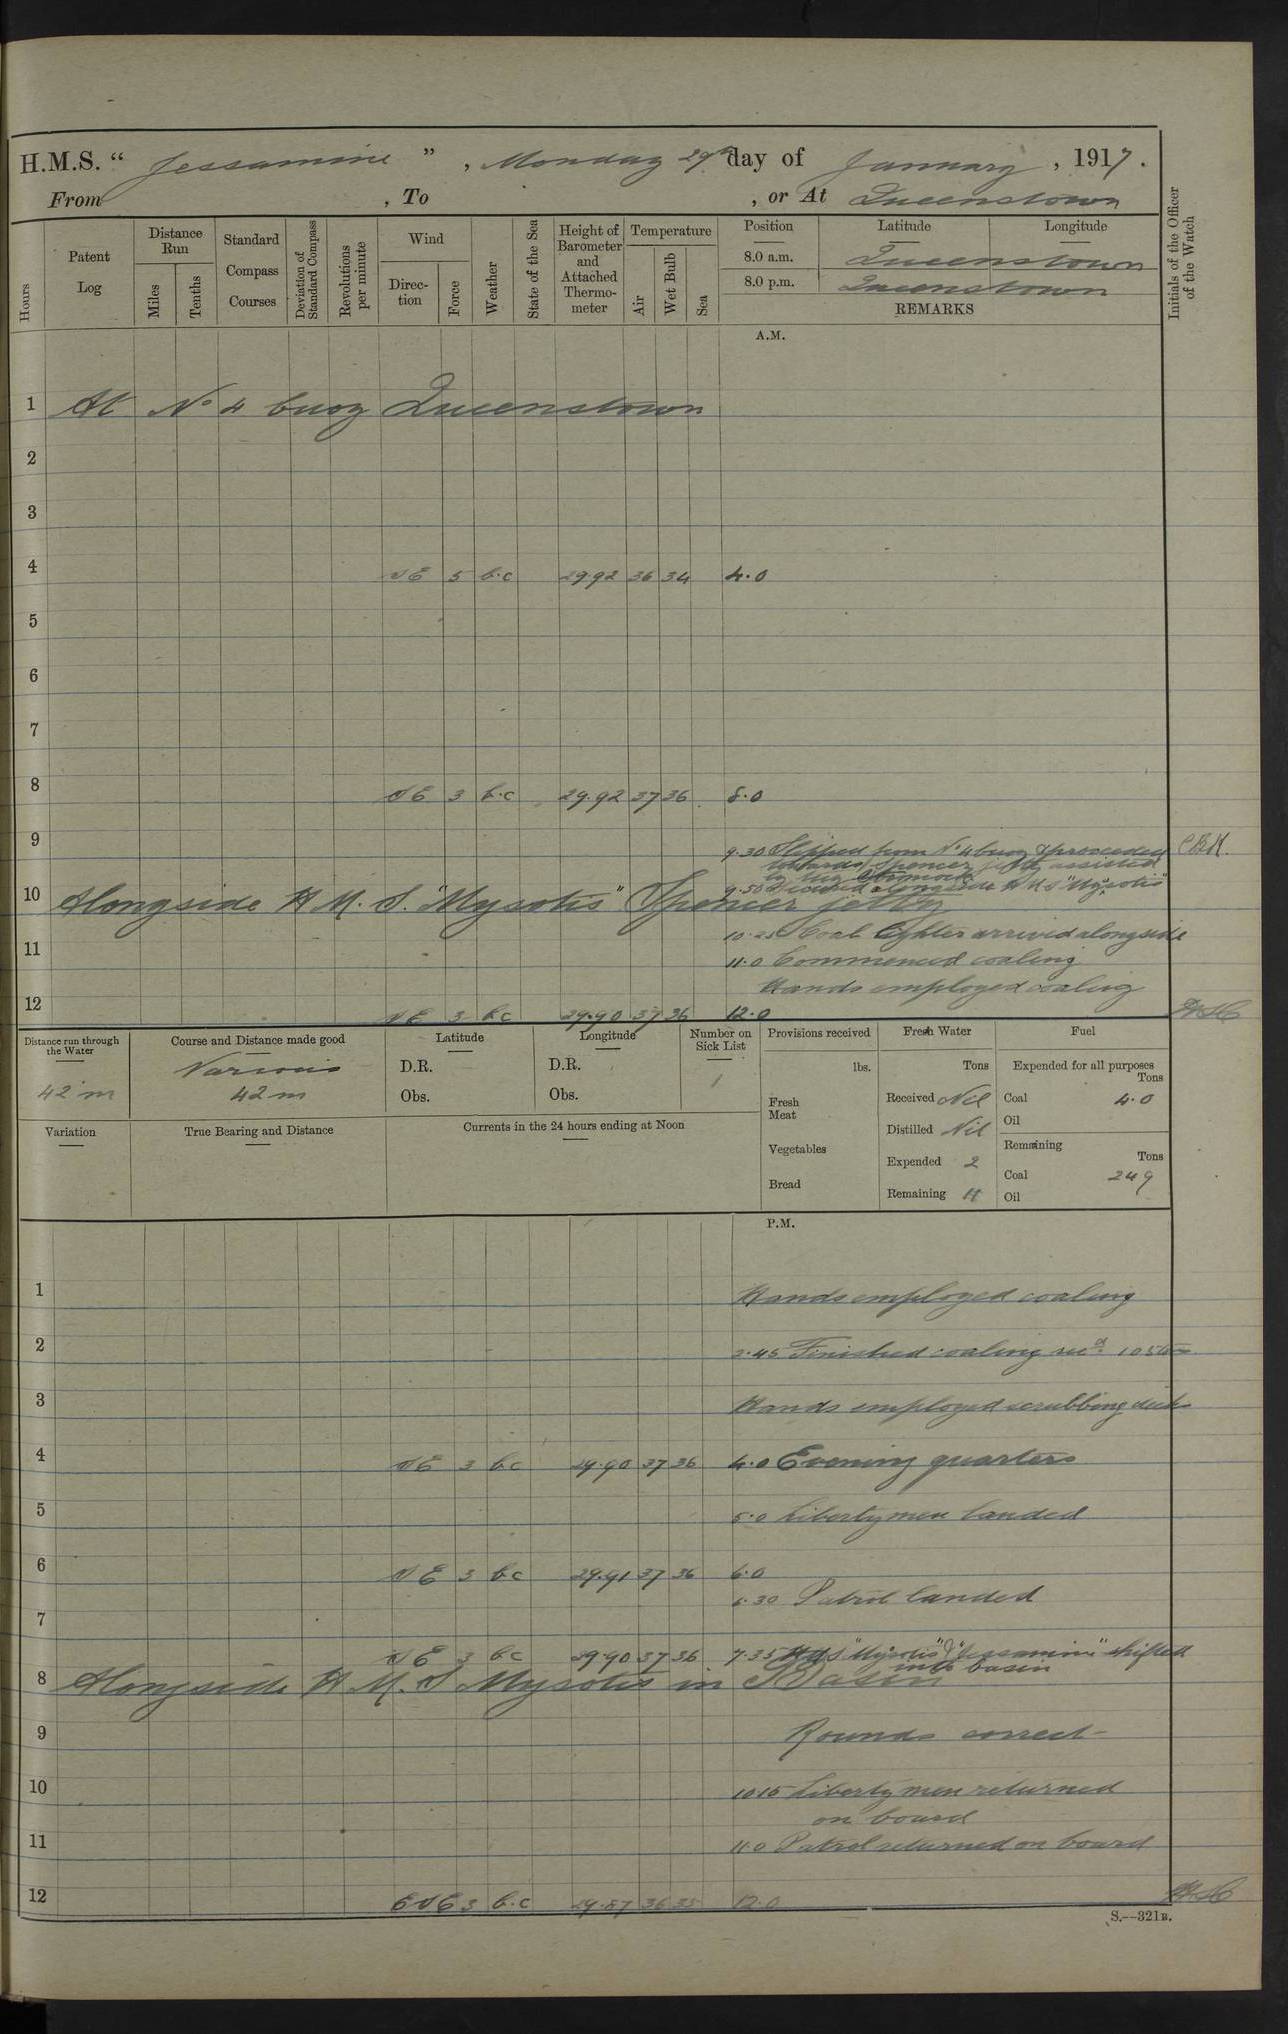 H.M.S. “ Jessamine ” , Monday 29th day of January , 1917 .
From , To , or At Queenstown
Hours
Patent Log
Distance Run
Miles
Tenths
Standard Compass Courses
Deviation of Standard Compass
Revolutions per minute
Wind
Direction
Force
Weather
State of the Sea
Height of Barometer and Attached Thermometer
Temperature
Air
Wet Bulb
Sea
Position Latitude Longitude
8.0 a.m. Queenstown
8.0 p.m. Queenstown
REMARKS
Initials of the Officer of the Watch
A.M.
1 At No 4 buoy Queenstown
2
3
4 NE 5 b.c 29.92 36 34 4.0
5
6
7
8 NE 3 b.c 29.92 37 36 8.0
9 9.30 Slipped from No 4 buoy & proceeded
towards Spencer jetty assisted
by tug
9.50 Secured alongside H.M.S "Mysotis"
10 Alongside H.M.S. "Mysotis" Spencer jetty
10.25 Coal lighter arrived alongside
11 11.0 Commenced coaling
Hands employed coaling
12 NE 3 b.c 29.90 37 36 12.0
Distance run through the Water
42 m
Course and Distance made good
Various
42 m
Latitude
D.R.
Obs.
Longitude
D.R.
Obs.
Number on Sick List
1
Provisions received
lbs.
Fresh Meat
Vegetables
Bread
Fresh Water
Tons
Received Nil
Distilled Nil
Expended 2
Remaining 11
Fuel
Expended for all purposes
Tons
Coal 4.0
Oil
Remaining
Tons
Coal 249
Oil
Variation
True Bearing and Distance
Currents in the 24 hours ending at Noon
P.M.
1 Hands employed coaling
2 2.45 Finished coaling recd. 105 tons
3 Hands employed scrubbing decks
4 NE 3 b.c 29.90 37 36 4.0 Evening quarters
5 5.0 Liberty men landed
6 NE 3 b.c 29.91 37 36 6.0
6.30 Patrol landed
7
NE 3 b.c 29.90 37 36 7.35 HMS "Mysotis" & "Jessamine" shifted
into basin
8 Alongside H.M.S Mysotis in Basin
9 Rounds correct
10 10.15 Liberty men returned
on board
11 11.0 Patrol returned on board
12 ENE 3 b.c 29.87 36 35 12.0
S.—321B.